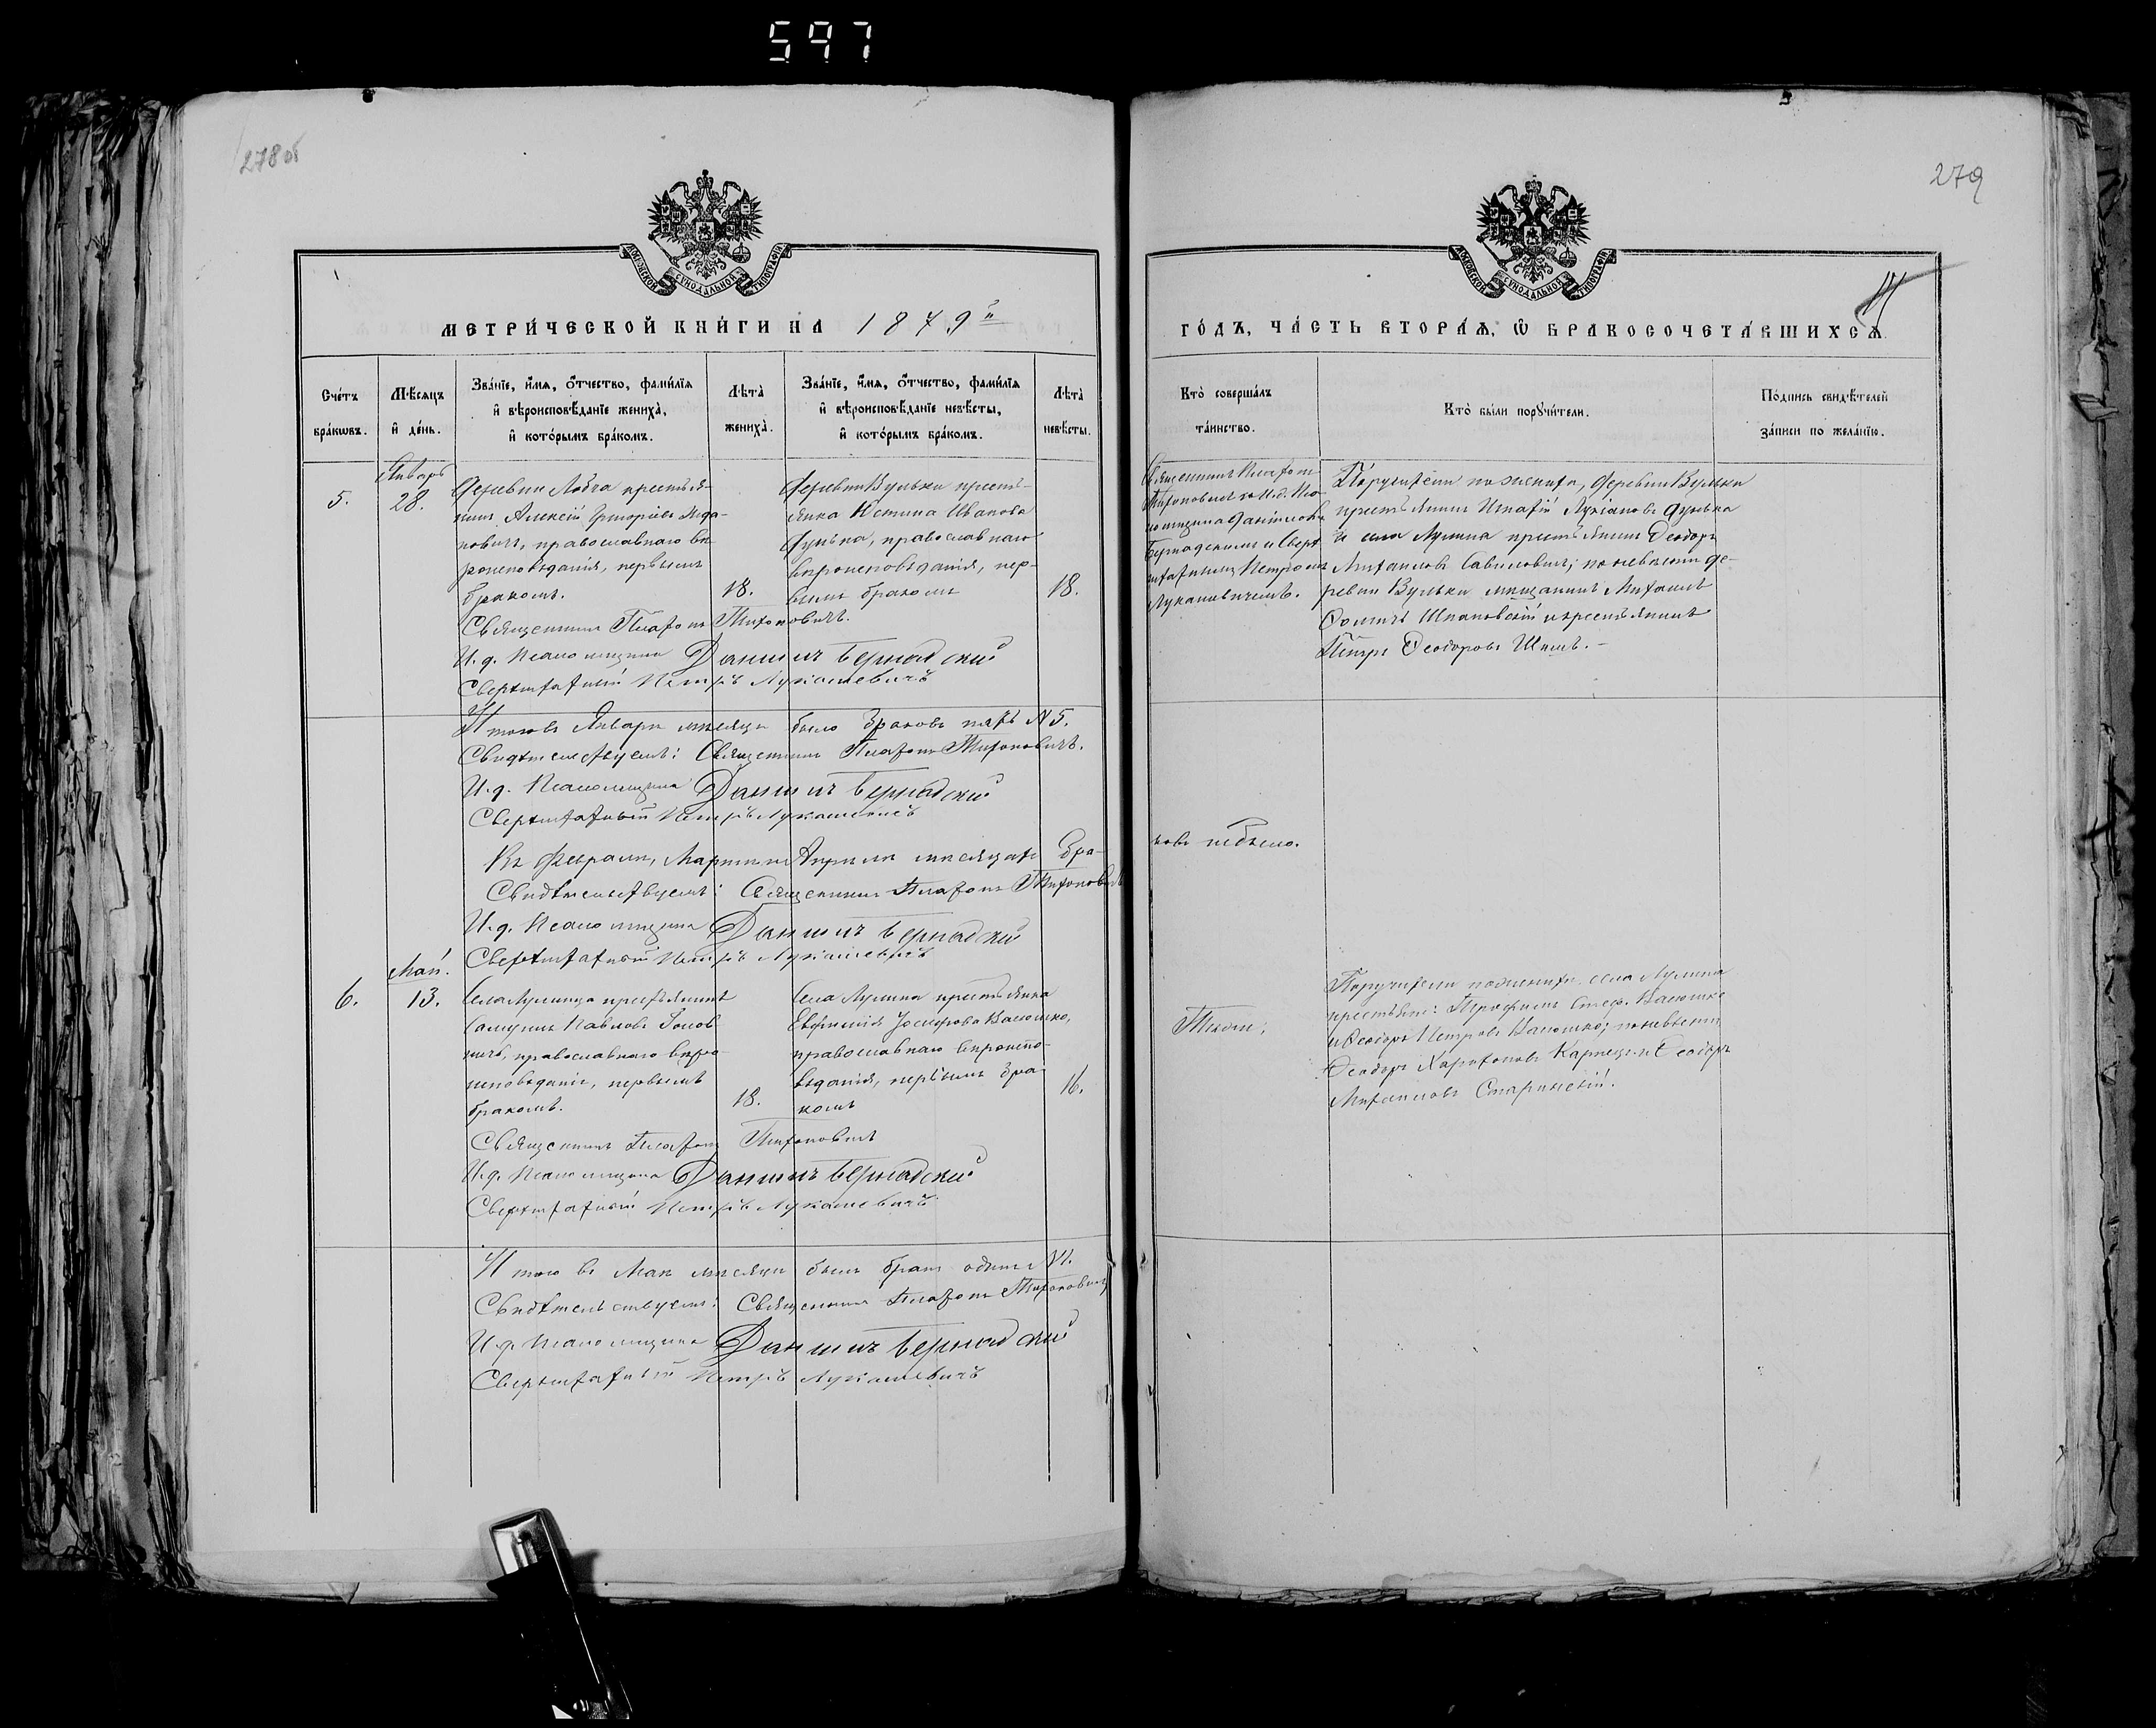 597
278 об
279
МОСКОВСКОЙ СѴНОДАЛЬНОЙ ТИПОГРАФІИ
МОСКОВСКОЙ СѴНОДАЛЬНОЙ ТИПОГРАФІИ
МЕТРИ́ЧЕСКОЙ КНИ́ГИ НА 1879й
ГО́ДЪ, ЧА́СТЬ ВТОРА́Ѧ, Ѽ БРАКОСОЧЕТА́ВШИХСѦ.
Сче́тъ бра́кѡвъ.
Мѣ́сѧцъ и҆ де́нь.
Зва́нїе, и҆́мѧ, ѻ҆́тчество, фамѝлїѧ
и҆ вѣроисповѣ́данїе жениха̀,
и҆ кото́рымъ бра́комъ.
Лѣта̀ жениха̀.
Зва́нїе, и҆́мѧ, ѻ҆́тчество, фамѝлїѧ
и҆ вѣроисповѣ́данїе невѣ́сты,
и҆ кото́рымъ бра́комъ.
Лѣта̀ невѣ́сты.
Кто̀ соверша́лъ та́инство.
Кто̀ бы́ли порꙋчи́тели.
По́дпись свидѣ́телей за́писи по жела́нїю.
5.
Январь
28.
Деревни Лобча крестья-
нинъ Алексій Григоріевъ
православнаго вѣ-
роисповѣданія, первымъ
бракомъ.
18.
Деревни Вульки кресть-
янка Іустина Иванова
Дунька, православнаго
вѣроисповѣданія, пер-
вымъ бракомъ
18.
Священникъ Платонъ
Тихоновичъ съ И.д. Пса-
ломщика Даніиломъ
Бернадскимъ и Сверх
штатнымъ Петромъ
Лукашевичемъ.
Поручители по женихѣ, деревни Вульки
крестьянинъ Игнатій Лукіановъ Дунька
и села Лунина крестьянинъ Ѳеодоръ
Михаиловъ Савиловичъ; по невѣстѣ де-
ревни Вульки мѣщанинъ Михаилъ
Ѳоминъ Шпаковскій и крестьянинъ
Петръ Ѳеодоровъ
Священникъ Платонъ Тихоновичъ.
И.д. Псаломщика Даніилъ Бернадскій
Сверхштатный Петръ Лукашевичъ
Итого въ Январѣ мѣсяцѣ было браковъ пять N 5.
Свидѣтельствуемъ: Священникъ Платонъ Тихоновичъ.
И.д. Псаломщика Даніилъ Бернадскій
Сверхштатный Петръ Лукашевичъ
Въ Февралѣ, Мартѣ и Апрѣлѣ мѣсяцахъ бра-
ковъ небыло.
Свидѣтельствуемъ: Священникъ Платонъ Тихоновичъ
И.д. Псаломщика Даніилъ Бернадскій
Сверхштатный Петръ Лукашевичъ
6.
Май.
13.
Села Лунинца крестьянинъ
Самуилъ Павловъ
православнаго вѣро-
исповѣданія, первымъ
бракомъ.
18.
Села Лунина крестьянка
Евфимія Іосифова Калошко,
православнаго вѣроиспо-
вѣданія, первымъ бра-
комъ
16.
Тѣже.
Поручители по женихѣ села Лунина
крестьяне: Трофимъ Стеф. Калошко
и Ѳеодоръ Петровъ Калошко; по невѣстѣ
Ѳеодоръ Харитоновъ Карпецъ и Ѳеодоръ
Михаиловъ Старинскій.
Священникъ Платонъ Тихоновичъ
И.д. Псаломщика Даніилъ Бернадскій
Сверхштатный Петръ Лукашевичъ
Итого въ Маѣ мѣсяцѣ былъ бракъ одинъ N1.
Свидѣтельствуемъ: Священникъ Платонъ Тихоновичъ
И.д. Псаломщика Даніилъ Бернадскій
Сверхштатный Петръ Лукашевичъ